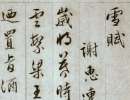 雪賦
謝惠連
歲將暮時
雲繁梁王
迺置旨酒